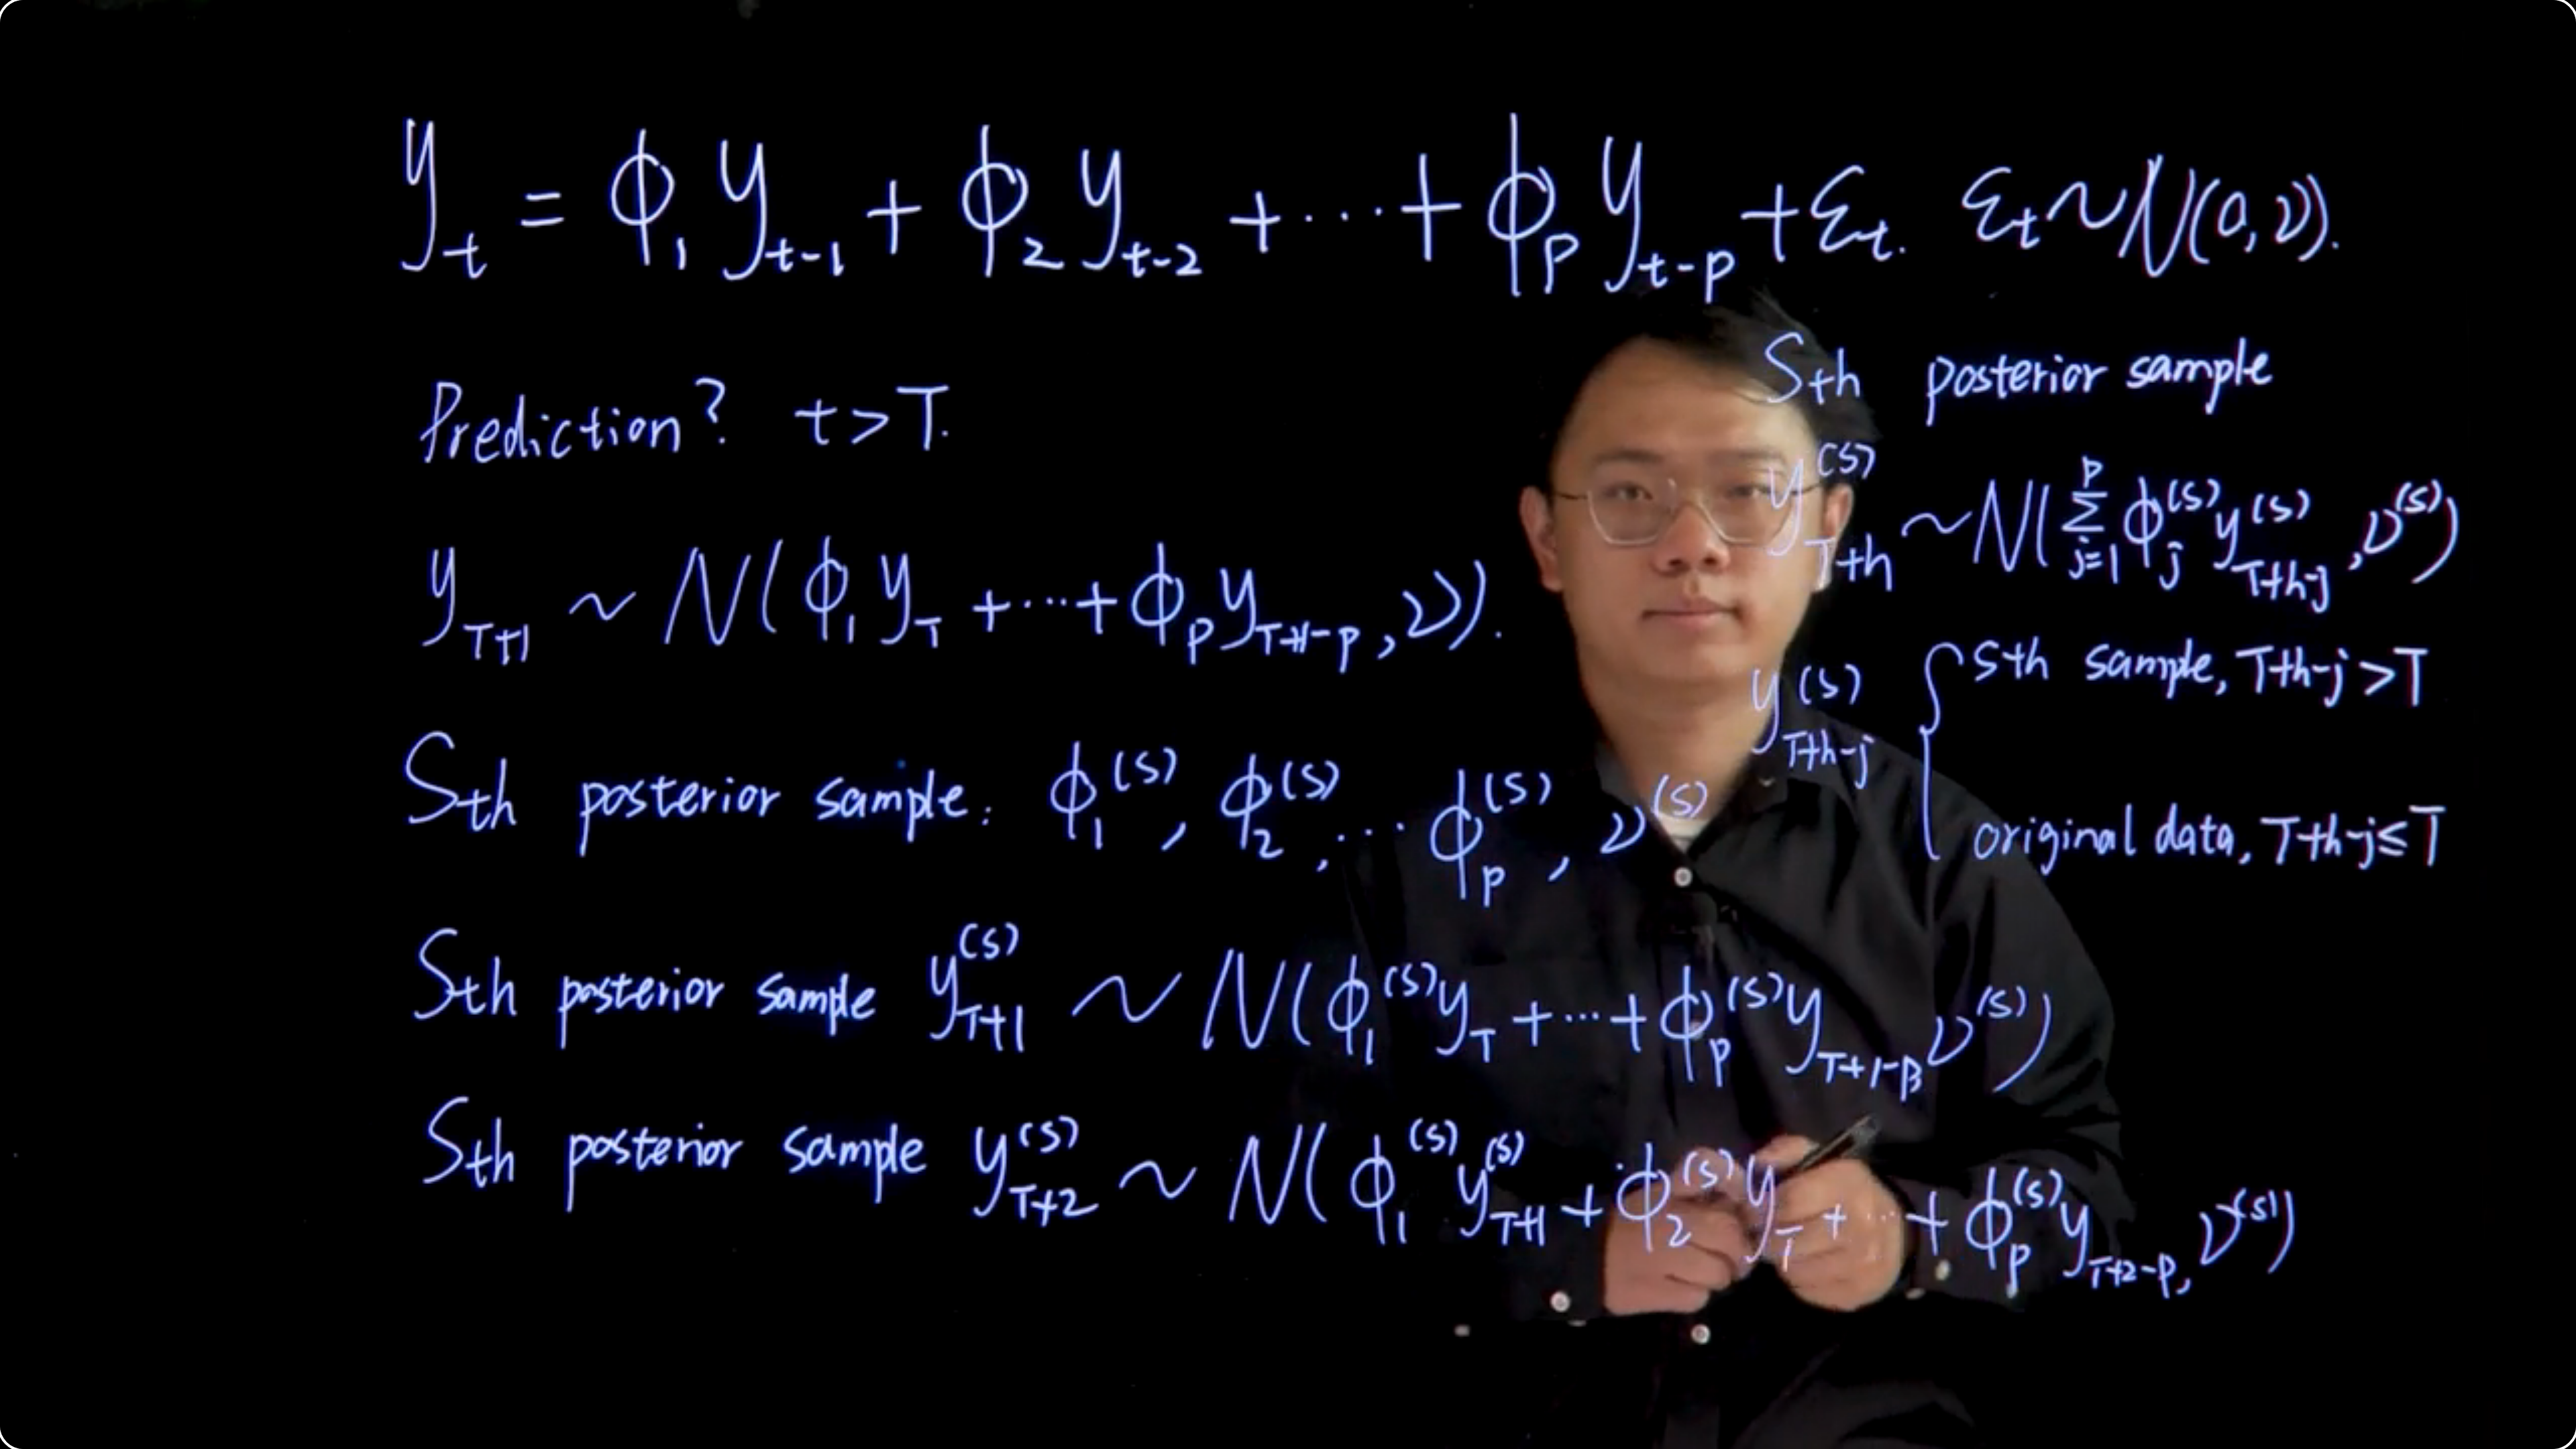 y_t = ϕ_1 y_{t-1} + ϕ_2 y_{t-2} + ⋯ + ϕ_p y_{t-p} + ε_t. ε_t ~ N(0, ν).
Prediction? t > T.
y_{T+1} ~ N(ϕ_1 y_T + ⋯ + ϕ_p y_{T+1-p}, ν).
Sth posterior sample: ϕ_1^{(s)}, ϕ_2^{(s)}, ⋯ ϕ_p^{(s)}, ν^{(s)}
Sth posterior sample y_{T+1}^{(s)} ~ N(ϕ_1^{(s)} y_T + ⋯ + ϕ_p^{(s)} y_{T+1-p}, ν^{(s)})
Sth posterior sample y_{T+2}^{(s)} ~ N(ϕ_1^{(s)} y_{T+1}^{(s)} + ϕ_2^{(s)} y_T + ⋯ + ϕ_p^{(s)} y_{T+2-p}, ν^{(s)})
Sth posterior sample
y_{T+h}^{(s)} ~ N(∑_{j=1}^{p} ϕ_j^{(s)} y_{T+h-j}^{(s)}, ν^{(s)})
y_{T+h-j}^{(s)} { sth sample, T+h-j > T
original data, T+h-j ≤ T